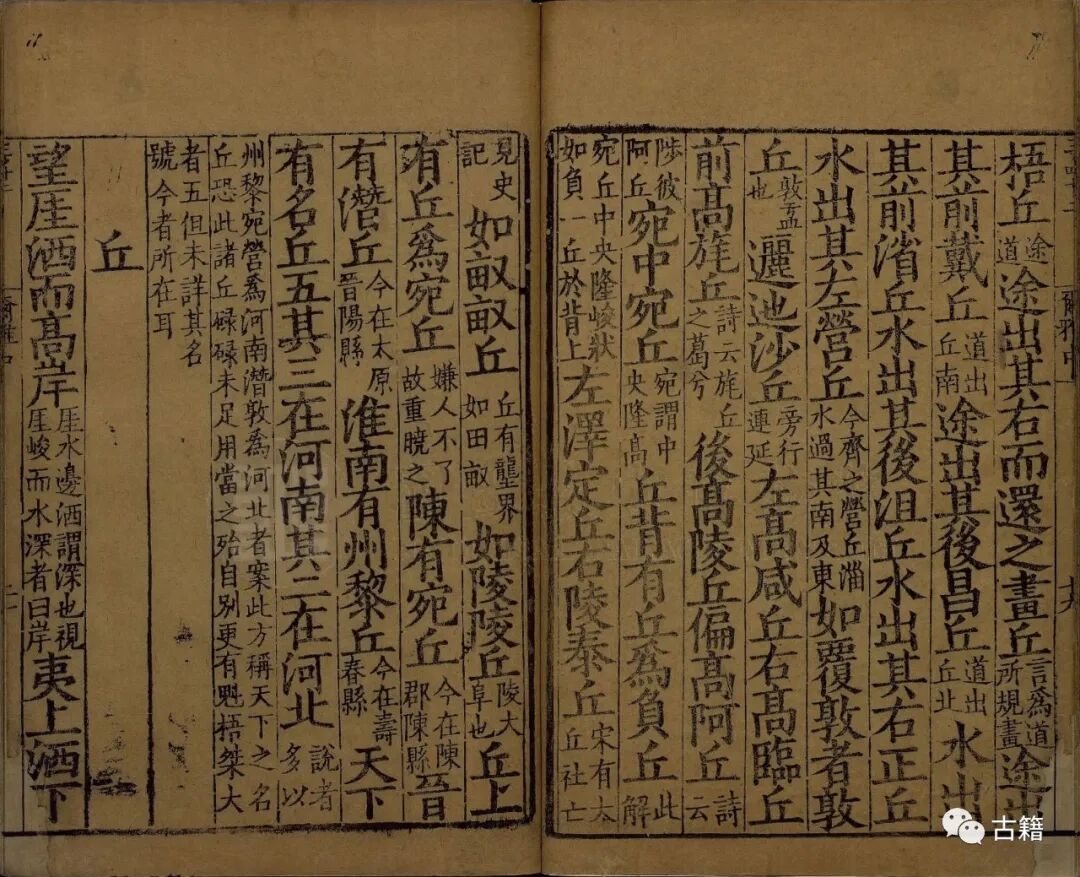 梧丘途道途出其右而還之畫丘言爲道所規畫途出
其前戴丘道出丘南途出其後昌丘道出丘北水出
其前渻丘水出其後沮丘水出其右正丘
水出其左營丘今齊之營丘淄水過其南及東如覆敦者敦
丘敦盂也邐迆沙丘旁行連延左高咸丘右高臨丘
前高旄丘詩云旄丘之葛兮後高陵丘偏高阿丘詩云
陟彼阿丘宛中宛丘宛謂中央隆高丘背有丘爲負丘此解
宛丘中央隆峻狀如負一丘於背上左澤定丘右陵泰丘宋有太丘社亡
見史記如畝畝丘丘有壟界如田畝如陵陵丘陵大阜也丘上
有丘爲宛丘嫌人不了故重曉之陳有宛丘今在陳郡陳縣晉
有潛丘今在太原晉陽縣淮南有州黎丘今在壽春縣天下
有名丘五其三在河南其二在河北說者多以
州黎宛營爲河南潛敦爲河北者案此方稱天下之名
丘恐此諸丘碌碌未足用當之殆自別更有魁梧桀大
者五但未詳其名
號今者所在耳
丘
望厓洒而高岸厓水邊洒謂深也視厓峻而水深者曰岸夷上洒下
古籍